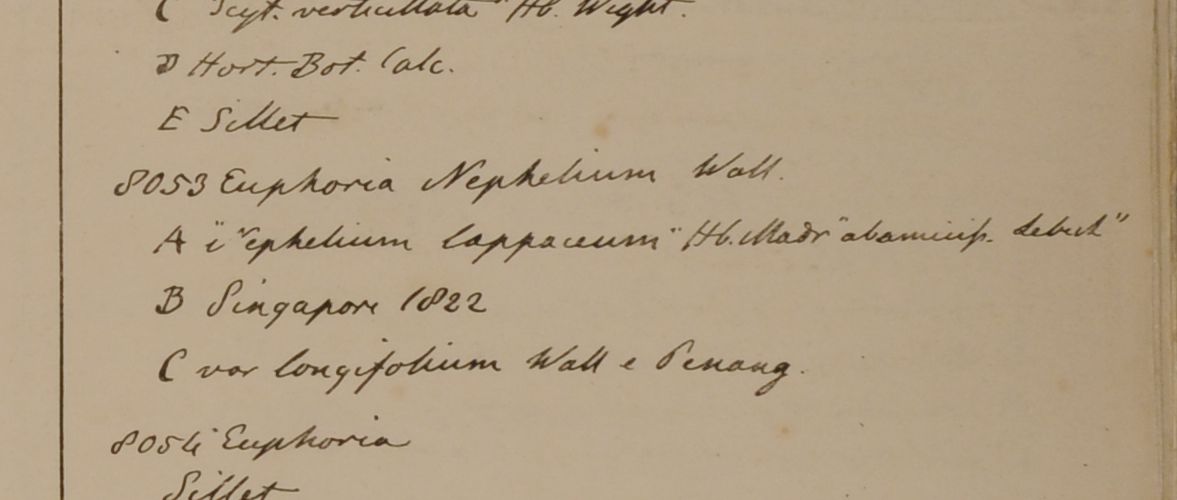 C "Scyt. verticillata" Hb. Wight.
D Hort. Bot. Calc.
E Sillet
8053 Euphoria Nephelium Wall.
A "Nephelium lappaceum" Hb. Madr "ab amicis. debuit"
B Singapore 1822
C var longifolium Wall e Penang.
8054 Euphoria
Sillet